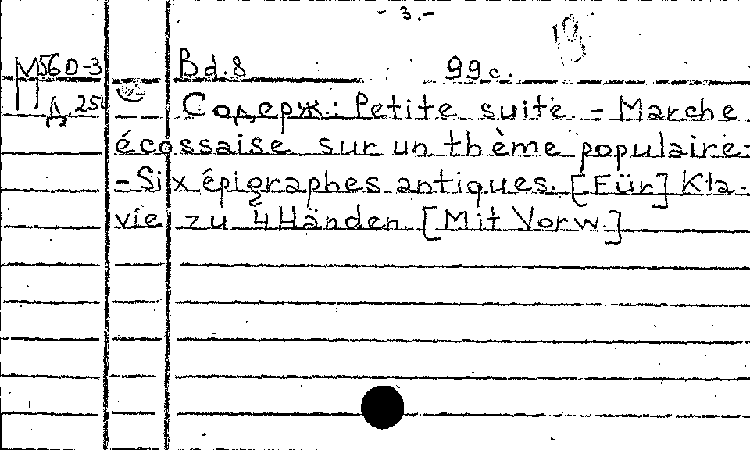 - 3.-
19
М56D-3 Bd.8 99 с.
Д 25
Содерж: Petite suite - Marche
écossaise sur un thème populaire-
-Six épigraphes antiques. [Für] Kla-
vie zu 4 Händen [Mit Vorw.]